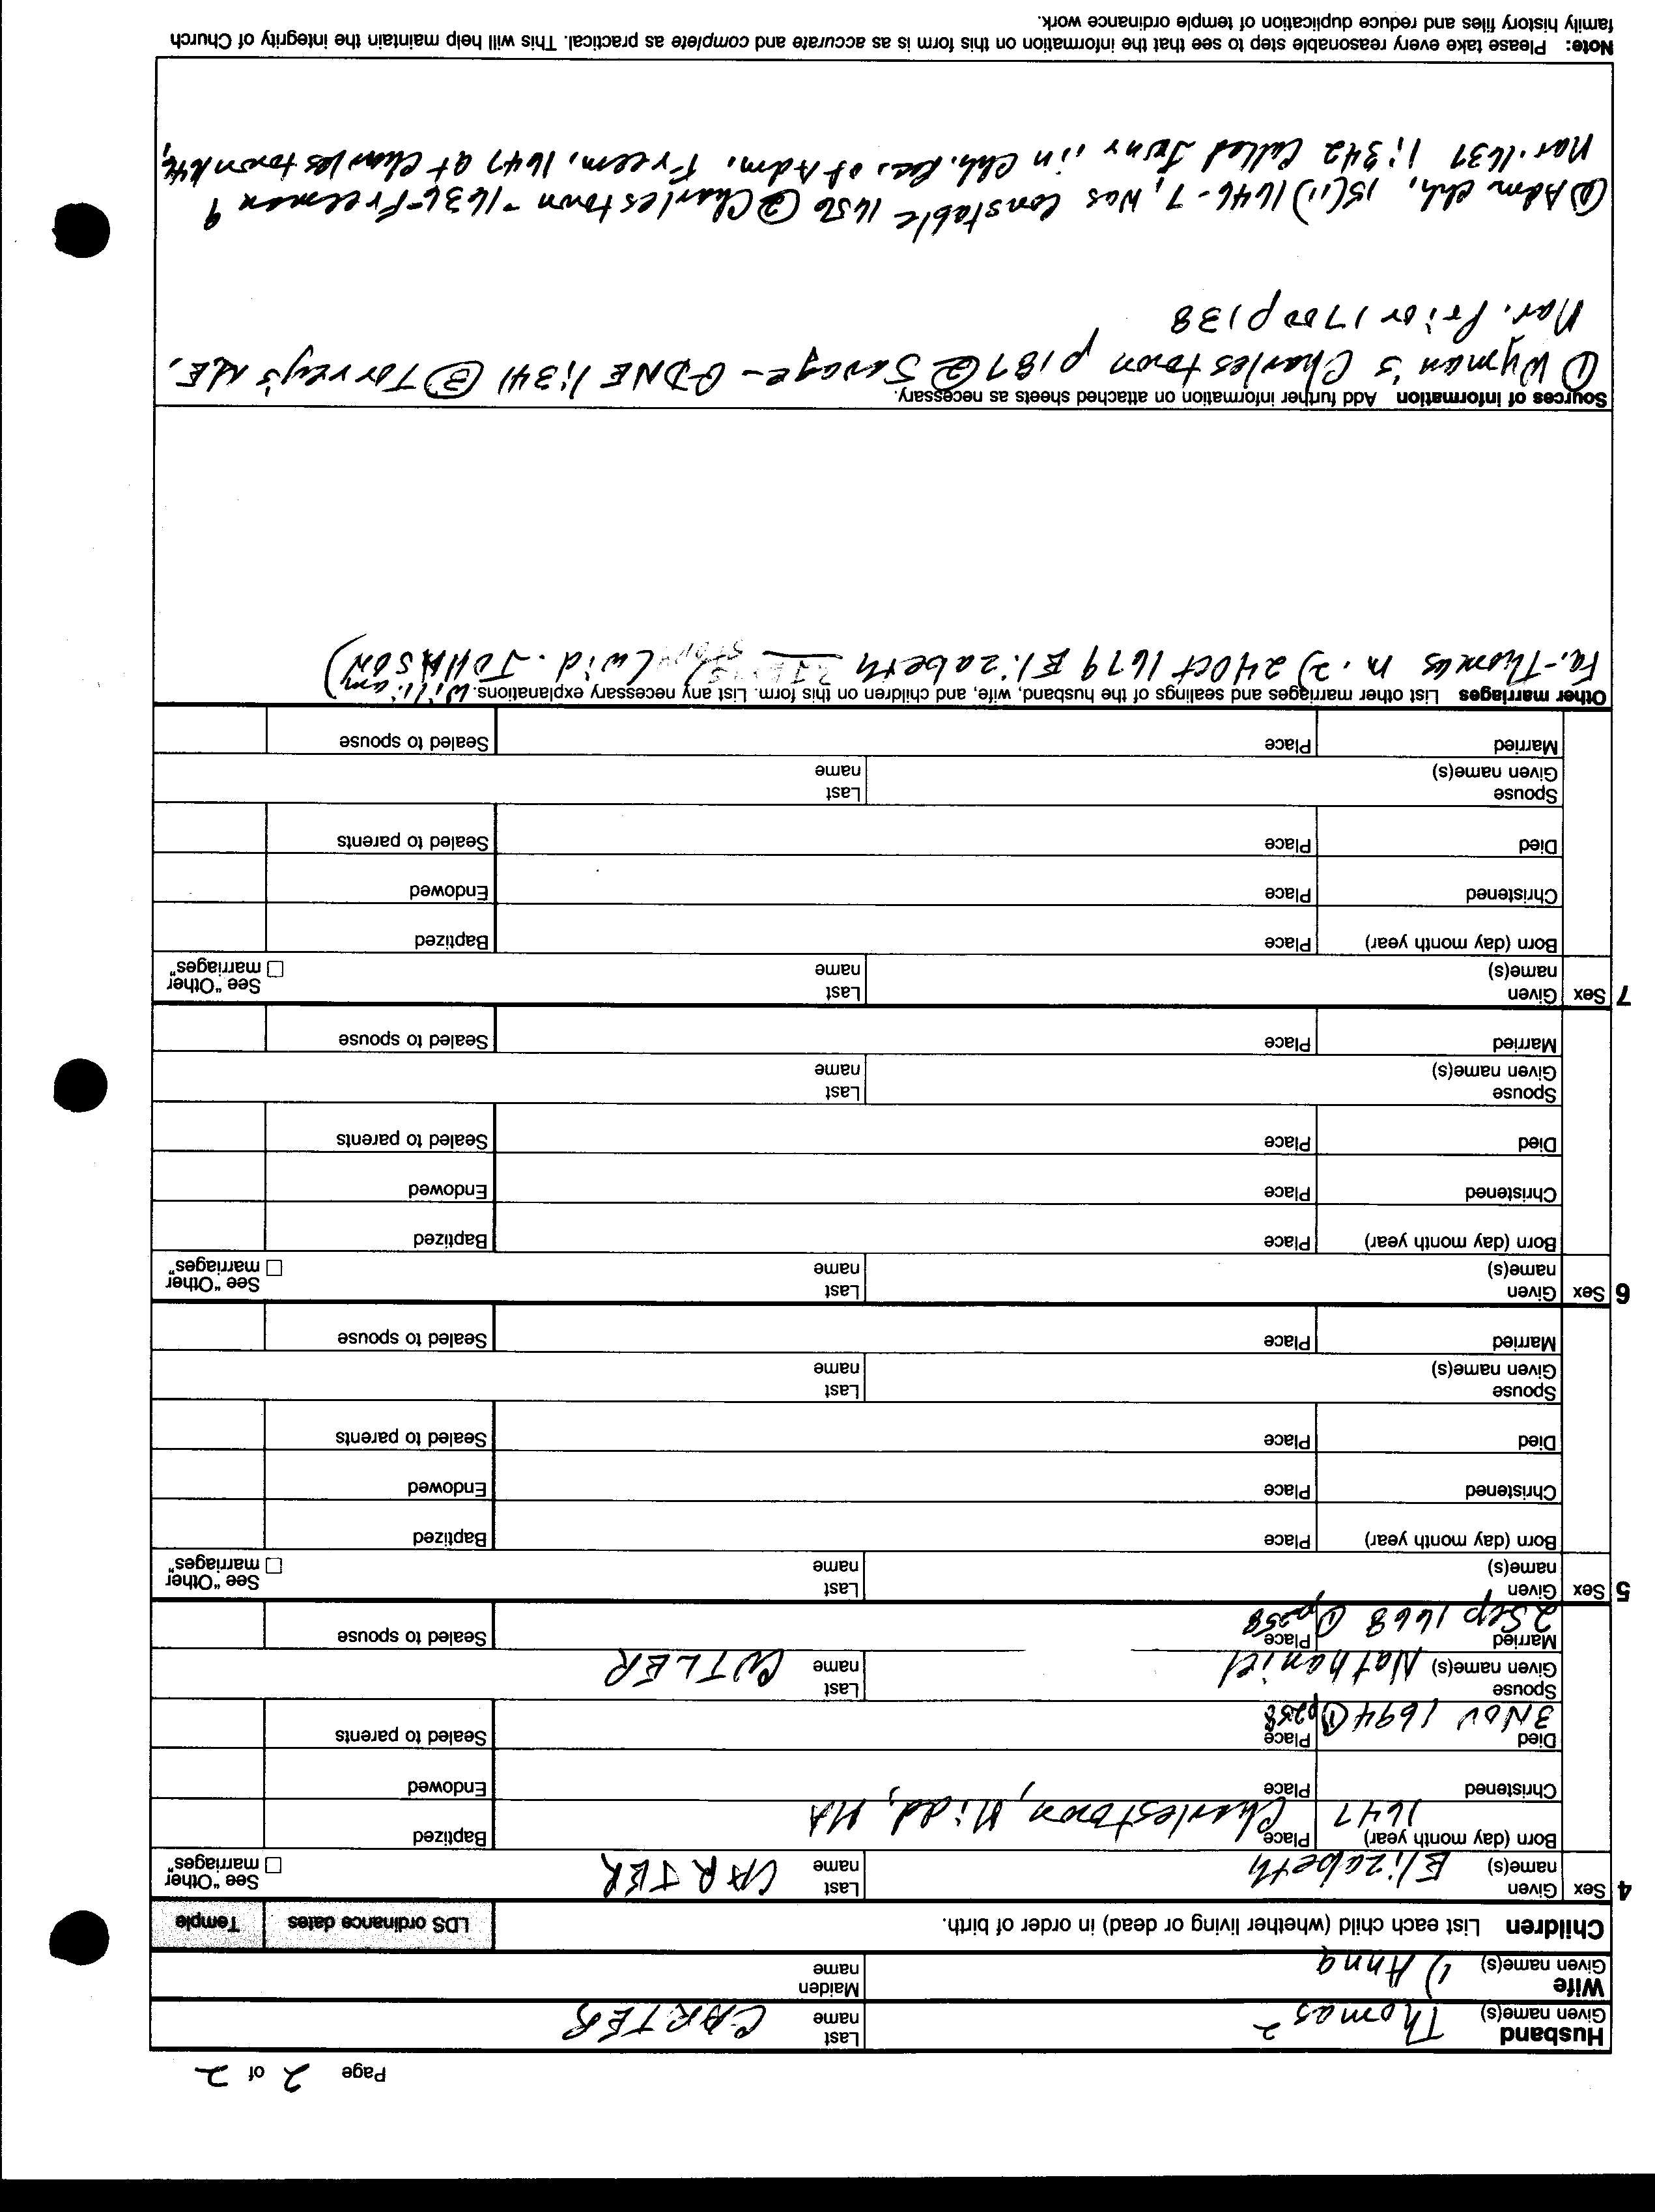 Page 2 of 2
Husband
Given name(s) Thomas 2 Last name CARTER
Wife
Given name(s) 1) Anna Maiden name
Children List each child (whether living or dead) in order of birth. LDS ordinance dates Temple
4 Sex Given name(s) Elizabeth Last name CARTER See "Other marriages"
Born (day month year) 1647 Place Charlestown, Midd, MA Baptized
Christened Place Endowed
Died 3 Nov 1694 ① p258 Place Sealed to parents
Spouse Given name(s) Nathaniel Last name CUTLER
Married 2 Sep 1668 ① p258 Place Sealed to spouse
5 Sex Given name(s) Last name See "Other marriages"
Born (day month year) Place Baptized
Christened Place Endowed
Died Place Sealed to parents
Spouse Given name(s) Last name
Married Place Sealed to spouse
6 Sex Given name(s) Last name See "Other marriages"
Born (day month year) Place Baptized
Christened Place Endowed
Died Place Sealed to parents
Spouse Given name(s) Last name
Married Place Sealed to spouse
7 Sex Given name(s) Last name See "Other marriages"
Born (day month year) Place Baptized
Christened Place Endowed
Died Place Sealed to parents
Spouse Given name(s) Last name
Married Place Sealed to spouse
Other marriages List other marriages and sealings of the husband, wife, and children on this form. List any necessary explanations. William
Fa.-Thomas m. 2) 24 Oct 1679 Elizabeth (wid. JOHNSON)
Sources of information Add further information on attached sheets as necessary.
① Wyman's Charlestown p 187 ② Savage - GDNE 1:341 ③ Torrey's N.E.
Mar. Prior 1700 p138
① Adm chh, 15(11)1646-7, Was Constable 1650 ② Charlestown - 1636-Freeman 9
Mar. 1637 1:342 Called Junr in Chh. Rec. of Adm. Freem. 1647 at Charlestown
Note: Please take every reasonable step to see that the information on this form is accurate and complete as practical. This will help maintain the integrity of Church
family history files and reduce duplication of temple ordinance work.